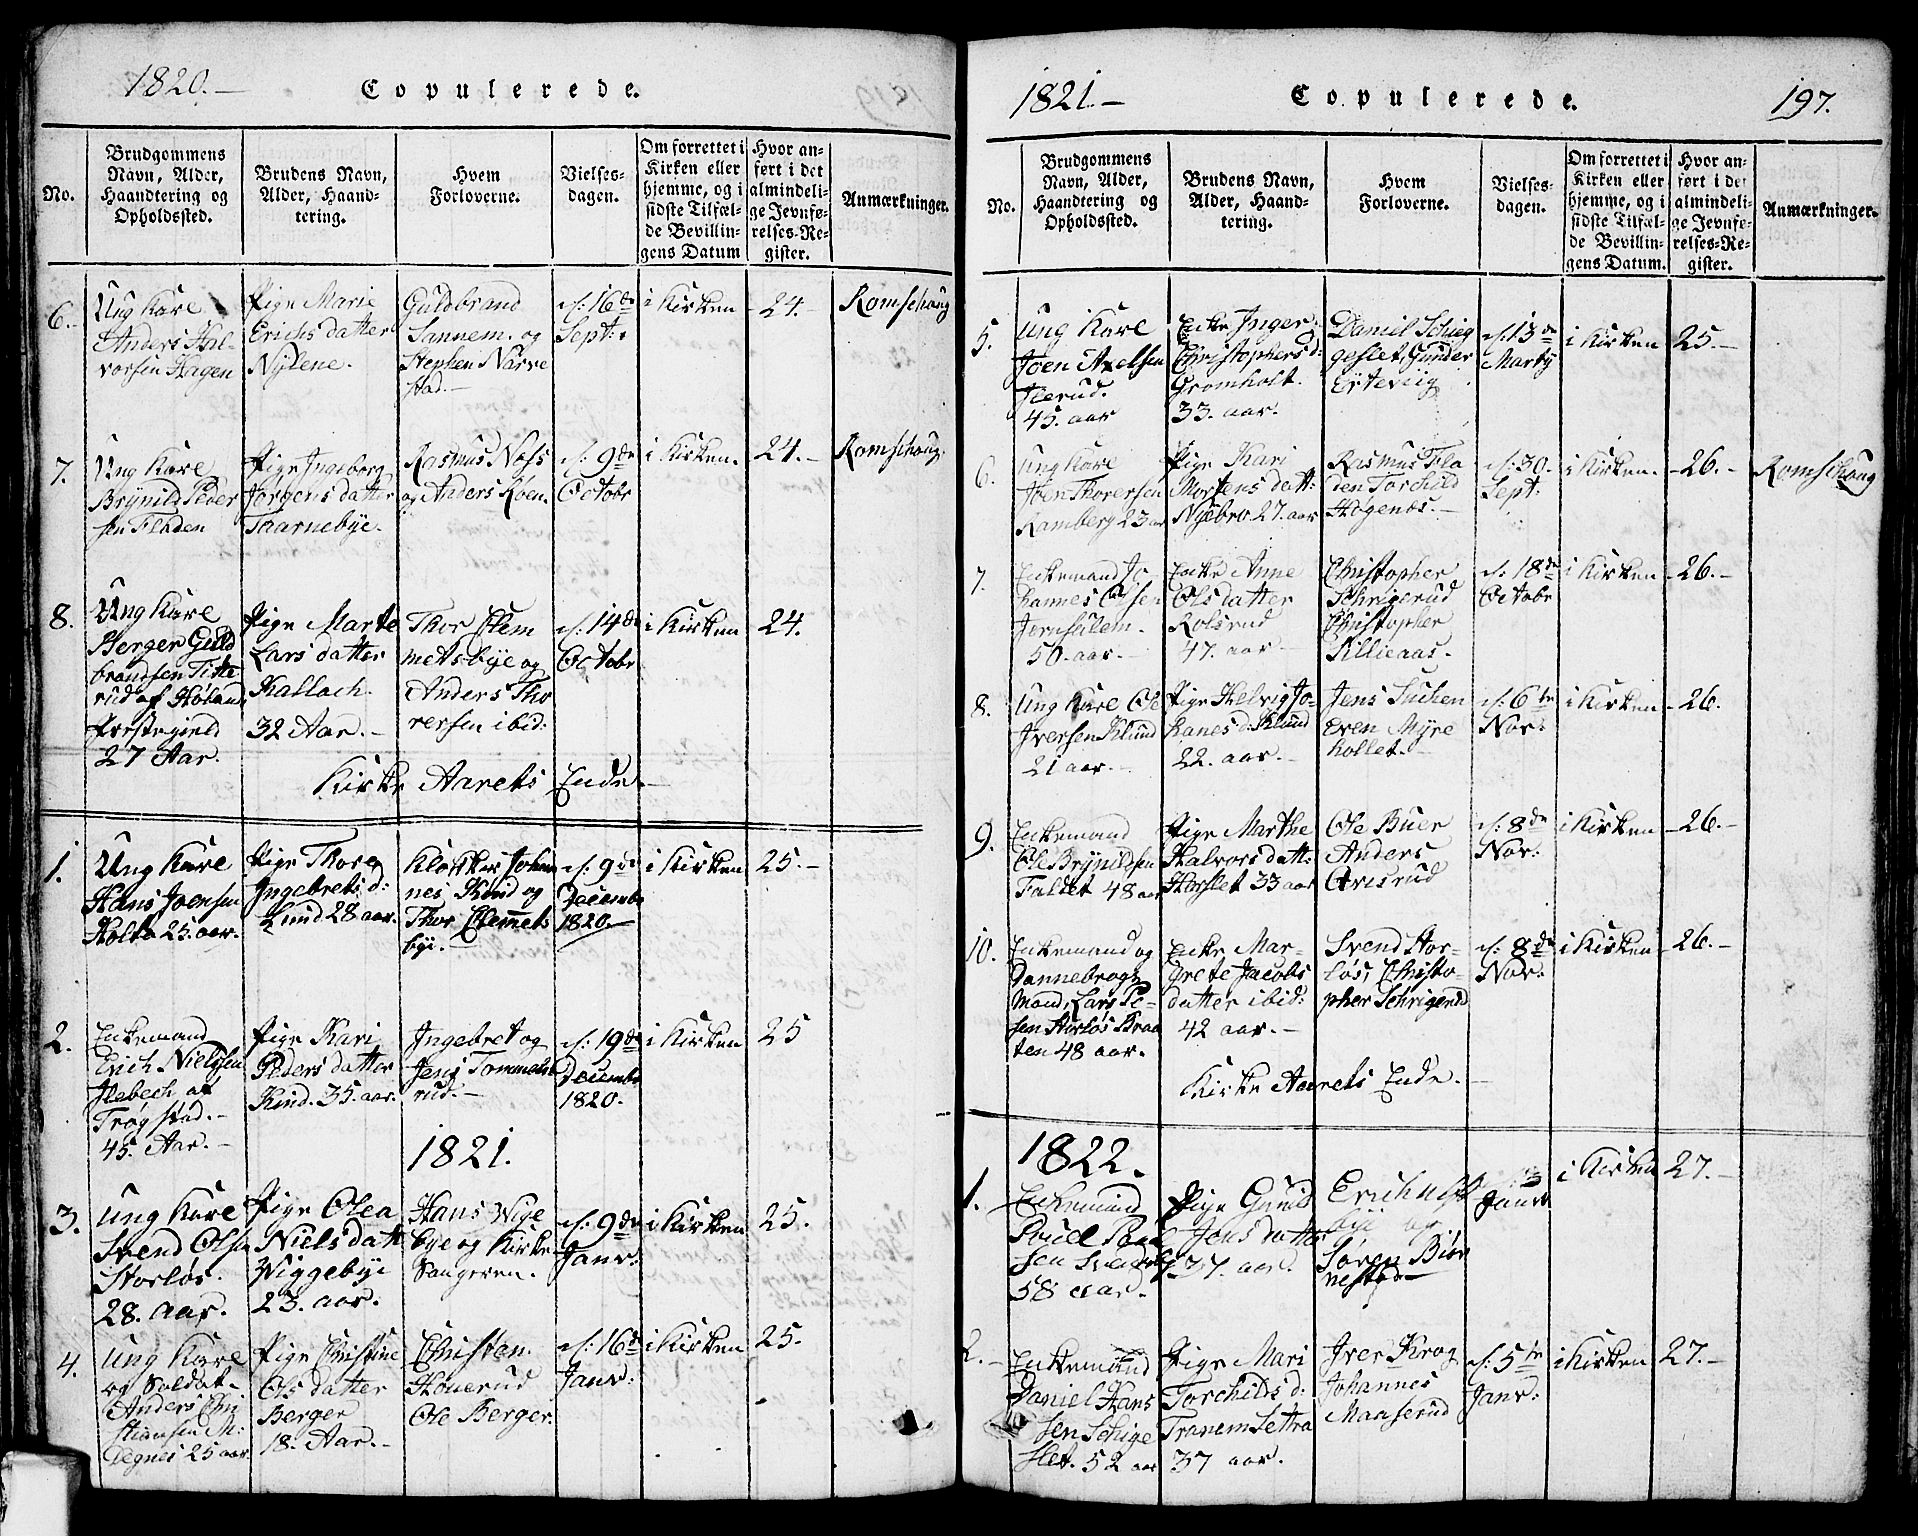 1820.-
Copulerede.
No.
Brudgommens
Navn, Alder,
Haandtering og
Opholdssted.
Brudens Navn,
Alder, Haand-
tering.
Hvem
Forloverne.
Vielses-
dagen.
Om forrettet i
Kirken eller
hjemme, og i
sidste Tilfæl-
de Bevillin-
gens Datum
Hvor an-
ført i det
almindeli-
ge Jevnfø-
relses-Re-
gister.
Anmærkninger.
6.
Ung Karl
Anders Hal-
vorsen Hagen
Pige Marie
Erichsdatter
Nylene.
Guldbrand
Sannem. og
Stephen Narve
stad.-
d: 16de
Sept:
i Kirken
24.
Romschoug
7.
Ung Karl
Brynild Peder
sen Fladen
Pige Ingeborg
Jørgensdatter
Taarnebye.
Rasmus Næss
og Anders Roen.
d: 9de
Octobr
i Kirken.
24.-
Romschoug.
8.
Ung Karl
Berger Guld
brandsen Titte
rud af Høland
Præstegield
27 Aar.
Pige Marte
Larsdatter
Kallach.
32 Aar.-
Thor Clem
metsbye og
Anders Tho
rersen ibid:
d: 14de
Octobr
i Kirken
24.
Kirke Aarets Ende.-
1.
Ung Karl
Hans Joensen
Holta 25. aar.
Pige Thore
Ingebretsd:
Lund 28 aar.
Klokker Johan
nes Kind og
Thor Clemmets
bye.-
d: 9de
Decembr
1820.
i Kirken
25.-
2.
Enkemand
Erich Nielssen
Ilebech af
Trøgstad.-
45. Aar.-
Pige Kari
Pedersdatter
Kind. 35. aar.
Ingebret og
Jens Tommels
rud.-
d: 19de
Decembr
1820.
i Kirken
25
1821.
3.
Ung Karl
Svend Olsen
Storløs.
28. aar.
Pige Olea
Nielsdatt
Wiggebye
23. aar.
Hans Wige
bye og Kirke
Sangeren.
d: 9de
Janv:
i Kirken
25.
4.
Ung Karl
og Soldat
Anders Chri
stiansen M:
Degnes 25 aar
Pige Christine
Olsdatter
Berger
18. Aar.-
Christian
Houerud
Ole Berger.
d: 16de
Janv:
i Kirken
25.
1821.-
Copulerede.
197.
No.
Brudgommens
Navn, Alder,
Haandtering og
Opholdssted.
Brudens Navn,
Alder, Haand-
tering.
Hvem
Forloverne.
Vielses-
dagen.
Om forrettet i
Kirken eller
hjemme, og i
sidste Tilfæl-
de Bevillin-
gens Datum.
Hvor an-
ført i det
almindeli-
ge Jevnfø-
relses-Re-
gister.
Anmærkninger.
5.
Ung Karl
Joen Axelsen
Ilerud.
45. aar
Enke Inger
Christophersd:
Gromholt.
33. aar.
Daniel Schieg
geslet, Gunder
Erteviig
d: 13de
Marty
i Kirken
25.-
6.
Ung Karl
Joen Thorersen
Ramberg 23 aar
Pige Kari
Mortensdatt:
Nyebro 27. aar
Rasmus Fla
den Torchild
Hogenæs.-
d: 30.
Sept:
i Kirken.
26.-
Romschoug
7.
Enkemand Jo
hannes Olsen
Jerusalem.
50. aar.-
Enke Anne
Olsdatter
Rolsrud
47. aar.-
Christopher
Schrigerud
Christopher
Killieaas.
d: 18de
Octobr
i Kirken
26.-
8.
Ung Karl Ole
Iversen Klund
21 aar.-
Pige Helvig Jo-
hanesd. Klund
22. aar.-
Jens Suchen
Even Myre
kollet.-
d: 6te
Nov:
i Kirken
26.
9.
Enkemand
Ole Brynildsen
Faldet 48 aar
Pige Marthe
Halvorsdatt:
Harslet 33 aar
Ole Buer
Anders
Orisrud
d: 8de
Nov:
i Kirken
26.-
10.
Enkemand og
Dannebrogs
Mand, Lars Pe-
sen Storløs Braa
ten 48 aar.
Enke Mar-
grete Jacobs
datter ibid:
42 aar.-
Svend Stor-
løs, Christo-
pher Schrigerud
d: 8de
Nov:
i Kirken
26.-
Kirke Aarets Ende.-
1822.
1.
Enkemand
Poul Poul
sen
58 aar.
Pige Gunild
Jonsdatter
37. aar.
Erich
bye og
Søren Biør
nestad
Janv
i Kirken
27.-
2.-
Enkemand
Daniel Hans
sen Schige
slet. 52 aar
Pige Mari
Torchildsd:
Tranem Lettra
37 aar.
Iver Krog
Johannes
Manserud
d: 5te
Janv:
i Kirken
27.-